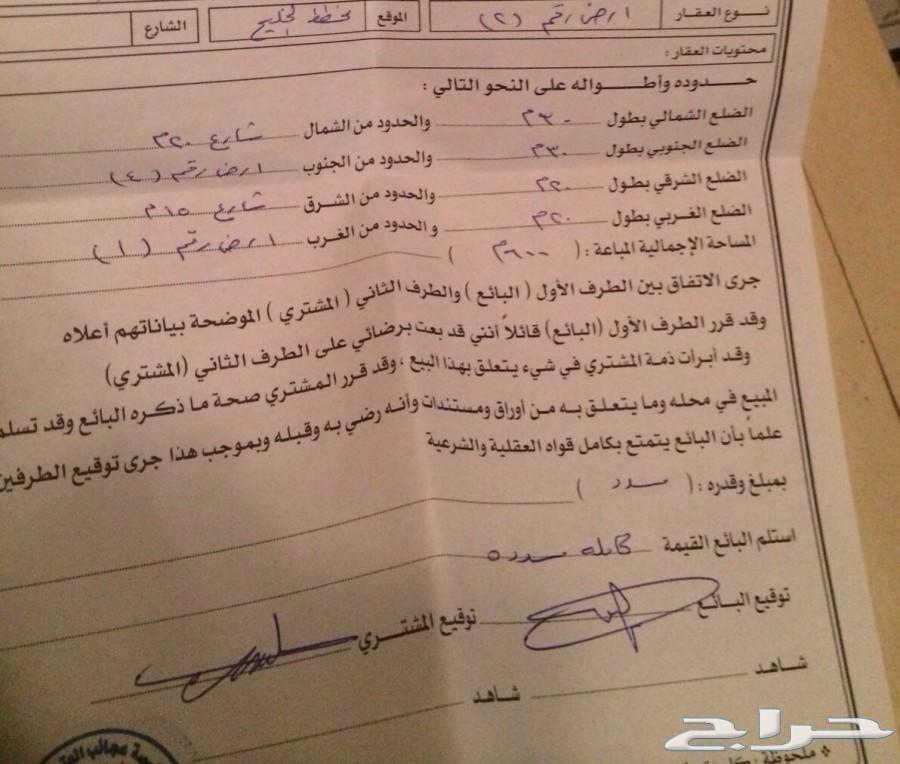 نوع العقار ارض رقم (٢) الموقع مخطط الخليج الشارع
محتويات العقار :
حدوده وأطواله على النحو التالي :
الضلع الشمالي بطول ٣٠م والحدود من الشمال شارع ٢٠م
الضلع الجنوبي بطول ٣٠م والحدود من الجنوب ارض رقم (٤)
الضلع الشرقي بطول ٢٠م والحدود من الشرق شارع ١٥م
الضلع الغربي بطول ٢٠م والحدود من الغرب ارض رقم (١)
المساحة الإجمالية المباعة : ( ٦٠٠م )
جرى الاتفاق بين الطرف الأول ( البائع ) والطرف الثاني ( المشتري ) الموضحة بياناتهم أعلاه
وقد قرر الطرف الأول (البائع) قائلاً أنني قد بعت برضائي على الطرف الثاني (المشتري)
وقد أبرأت ذمة المشتري في شيء يتعلق بهذا البيع ، وقد قرر المشتري صحة ما ذكره البائع وقد تسلم
المبيع في محله وما يتعلق به من أوراق ومستندات وأنه رضي به وقبله وبموجب هذا جرى توقيع الطرفين
علماً بأن البائع يتمتع بكامل قواه العقلية والشرعية
بمبلغ وقدره : ( مسدد )
استلم البائع القيمة كامله مسدده
توقيع البائع توقيع المشتري
شاهد شاهد
حراج
* ملحوظة :